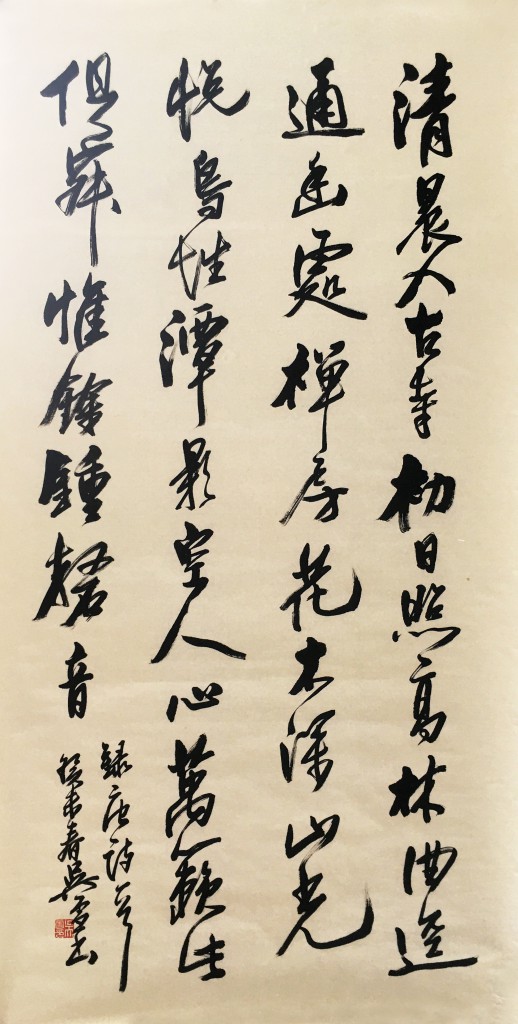 清晨入古寺初日照高林曲逕
通幽處禪房花木深山光
悅鳥性潭影空人心萬籟此
俱寂惟餘鍾磬音
録唐詩一首
癸未春